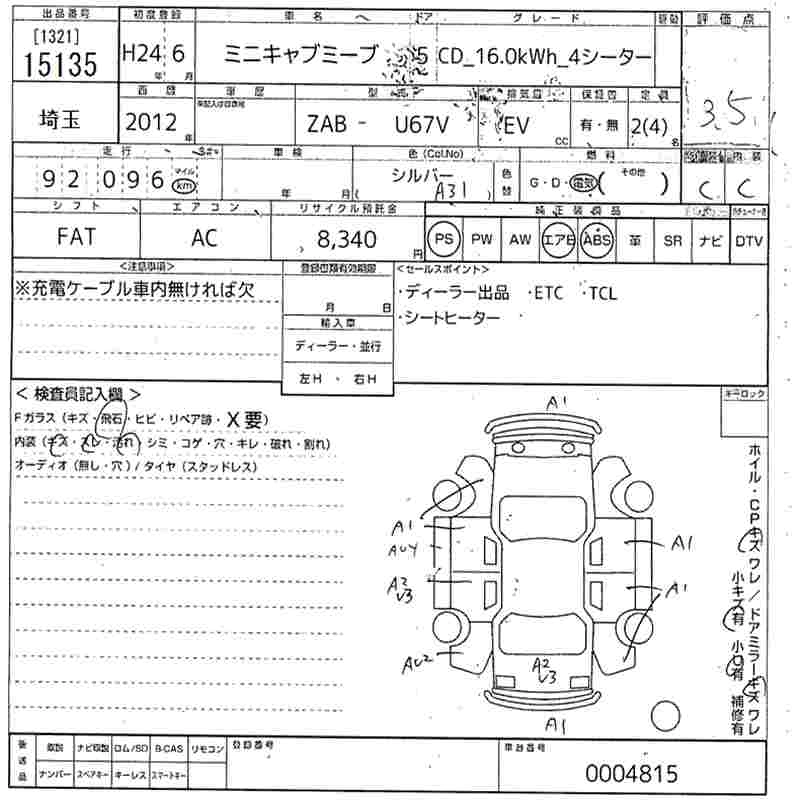 出品番号 初度登録 車名 ドア グレード 駆動 評価点
[1321]
15135 H24 年 6 月 ミニキャブミーブ 5 CD_16.0kWh_4シーター 3.5
西暦 車歴 型式 排気量 保証書 定員
埼玉 2012 年 ZAB - U67V EV CC 有・無 2(4) 名
走行 車検 色(Col.No) 燃料 内装
92,096 マイル km 年 月 シルバー A31 色替 G・D・電気( その他 ) C C
シフト エアコン リサイクル預託金 純正装備品
FAT AC 8,340 円 PS PW AW エアB ABS 革 SR ナビ DTV
<注意事項> 登録書類有効期限 <セールスポイント>
※充電ケーブル車内無ければ欠 月 日 ・ディーラー出品 ・ETC ・TCL
輸入車 ・シートヒーター
ディーラー・並行
左H ・ 右H
< 検査員記入欄 > キーロック
Fガラス(キズ・飛石・ヒビ・リペア跡・X要)
内装(キズ・スレ・汚れ・シミ・コゲ・穴・キレ・破れ・割れ)
オーディオ(無し・穴)/タイヤ(スタッドレス)
A1
A1 A1
AU4
A2 A1
U3
AU2 A2
U3
A1
ホイル・CPキズ ワレ / ドアミラーキズ ワレ
小キズ有 小凹有 補修有
後送品 取説 ナビ取説 ロム/SD B-CAS リモコン 登録番号 車台番号
ナンバー スペアキー キーレス スマートキー 0004815